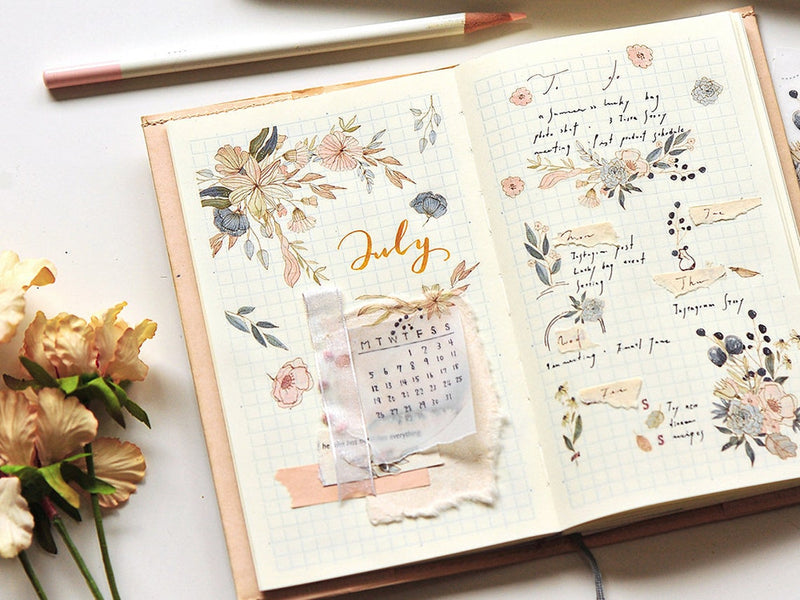 July
M T W T F S S
1 2 3 4
5 6 7 8 9 10 11
12 13 14 15 16 17 18
19 20 21 22 23 24 25
26 27 28 29 30 31
everything.
To do
a summer lucky bag
photo shoot
meeting post product schedule
Mon
Instagram post
Lucky bag event
Setting
Tue
Thu
Instagram Story
Wed
meeting Email
S
S
Try new
recipes